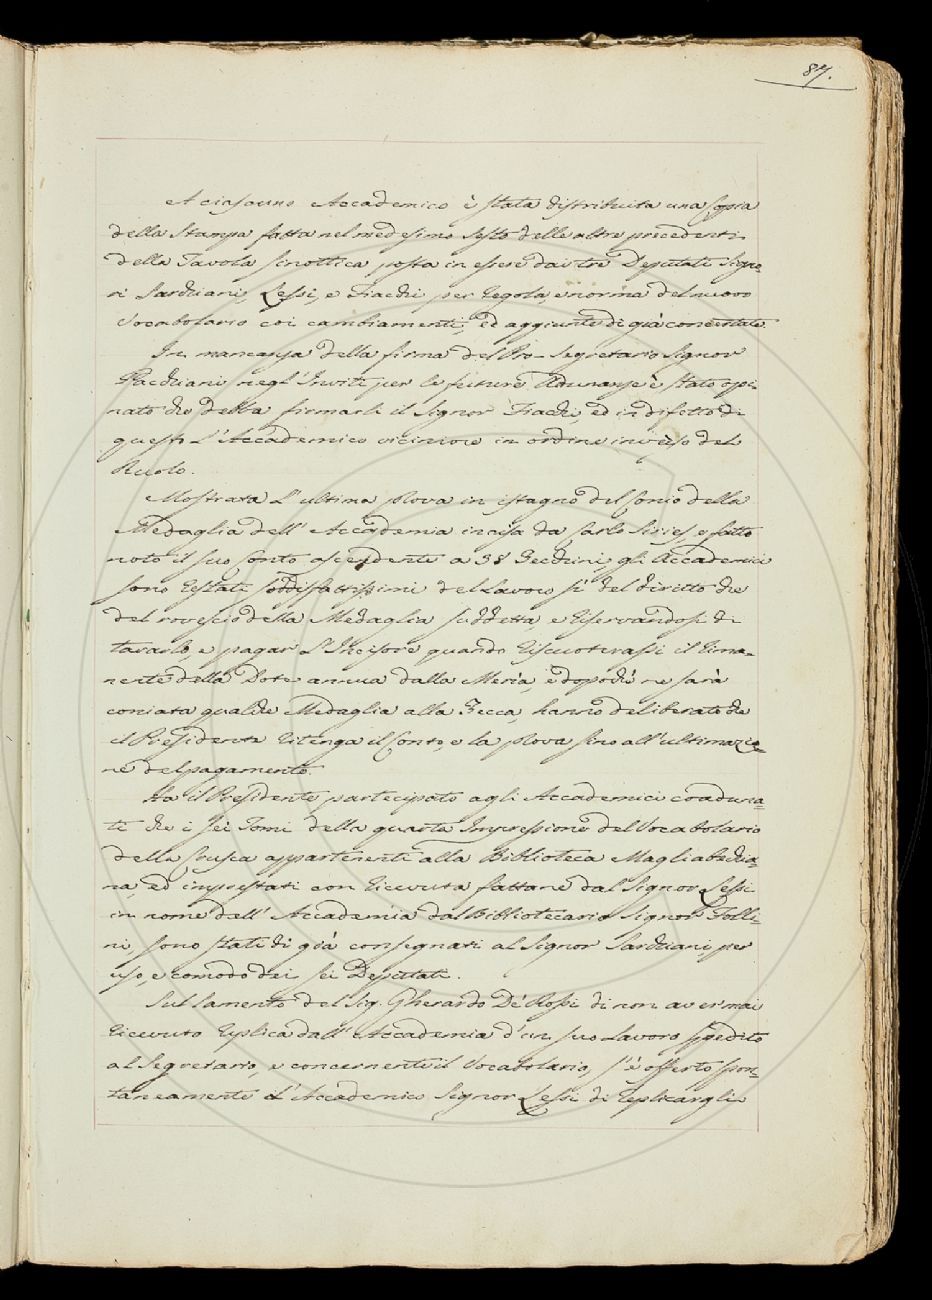 87.
A ciascuno Accademico è stata distribuita una Copia
della Stampa fatta nel medesimo sesto delle altre precedenti
della Tavola sinottica posta in essere dai tre Deputati Signo-
ri Sarchiani, Lessi, e Fiacchi per regola, e norma del nuovo
Vocabolario coi cambiamenti, ed aggiunte di già concertate.
In mancanza della firma del Pro-Segretario Signor
Sarchiani negl'Inviti per le future Adunanze è stato opi-
nato che debba firmarli il Signor Fiacchi, ed in difetto di
questo l'Accademico viciniore in ordine inverso del
Ruolo.
Mostrata l'ultima prova in istagno del Conio della
Medaglia dell'Accademia incisa da Carlo Siries, e fatto
noto il suo Conto ascendente a 38 Zecchini, gli Accademici
sono restati soddisfattissimi del Lavoro sì del diritto che
del rovescio della Medaglia suddetta, e riservandosi di
tararlo, e pagar l'Incisore quando riscuoterassi il rima-
nente della Dote annua dalla Merìa, e dopoché ne sarà
coniata qualche Medaglia alla Zecca, hanno deliberato che
il Presidente ritenga il Conto, e la prova sino all'ultimazio-
ne del pagamento.
Ha il Presidente partecipato agli Accademici coaduna-
ti che i sei Tomi della quarta Impressione del Vocabolario
della Crusca appartenenti alla Biblioteca Magliabechia-
na, ed imprestati con ricevuta fattane dal Signor Lessi
in nome dell'Accademia dal Bibliotecario Signor Folli-
ni, sono stati di già consegnati al Signor Sarchiani, per
uso, e comodo dei sei Deputati.
Sul lamento del Sig. Gherardo De' Rossi di non aver mai
ricevuto replica dall'Accademia d'un suo Lavoro spedito
al Segretario, e concernente il Vocabolario, s'è offerto spon-
taneamente l'Accademico Signor Lessi di replicargli